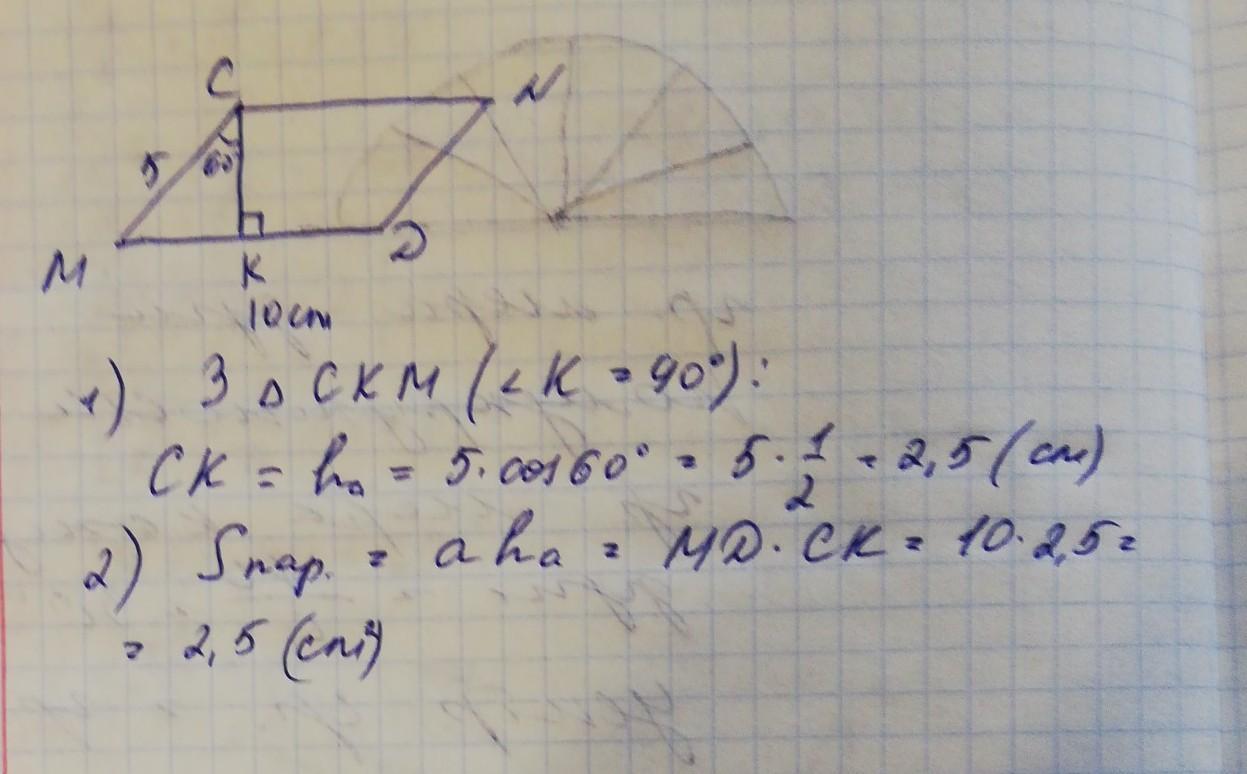 C
N
5
60°
M
K
D
10 cm
1) З Δ CKM (∠K = 90°):
CK = hₐ = 5·cos60° = 5·1/2 = 2,5 (см)
2) Sпар. = ahₐ = MD·CK = 10·2,5 =
= 2,5 (cm²)